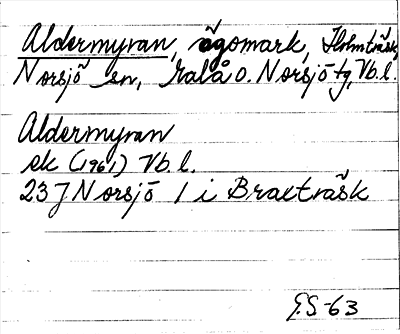 Aldermyran, ägomark, Holmträsk,
Norsjö sn, Malå o. Norsjö tg, Vb.l.
Aldermyran
ek (1961) Vb.l.
23 J Norsjö 1 i Braxträsk
E.S-63